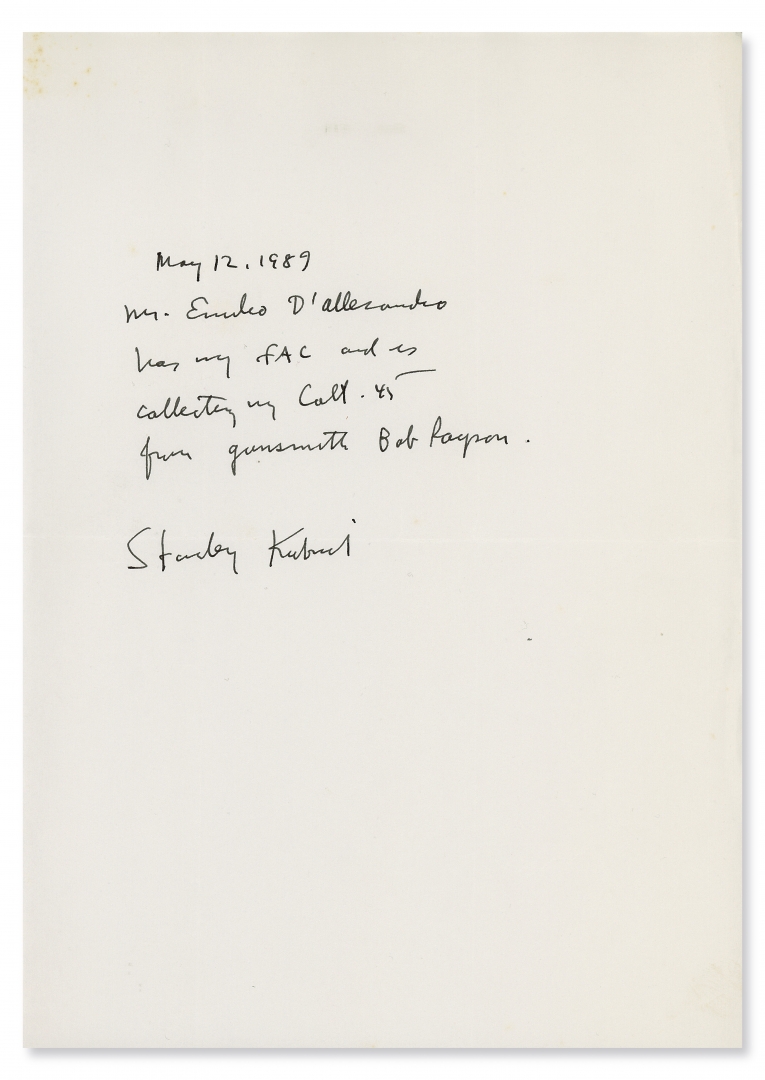 May 12, 1989
Mr. Emilio D'allesandro
has my FAC and is
collecting my Colt .45
from gunsmith Bob Payson.
Stanley Kubrick